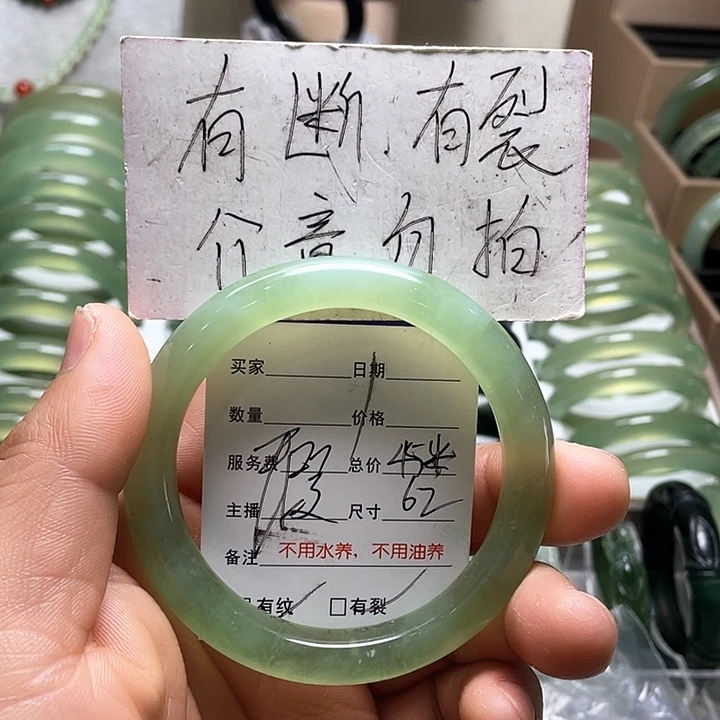 有断.有裂
介意勿拍
买家 日期
数量 价格
服务费 总价 45米
主播 尺寸 62
备注 不用水养，不用油养
有纹 有裂